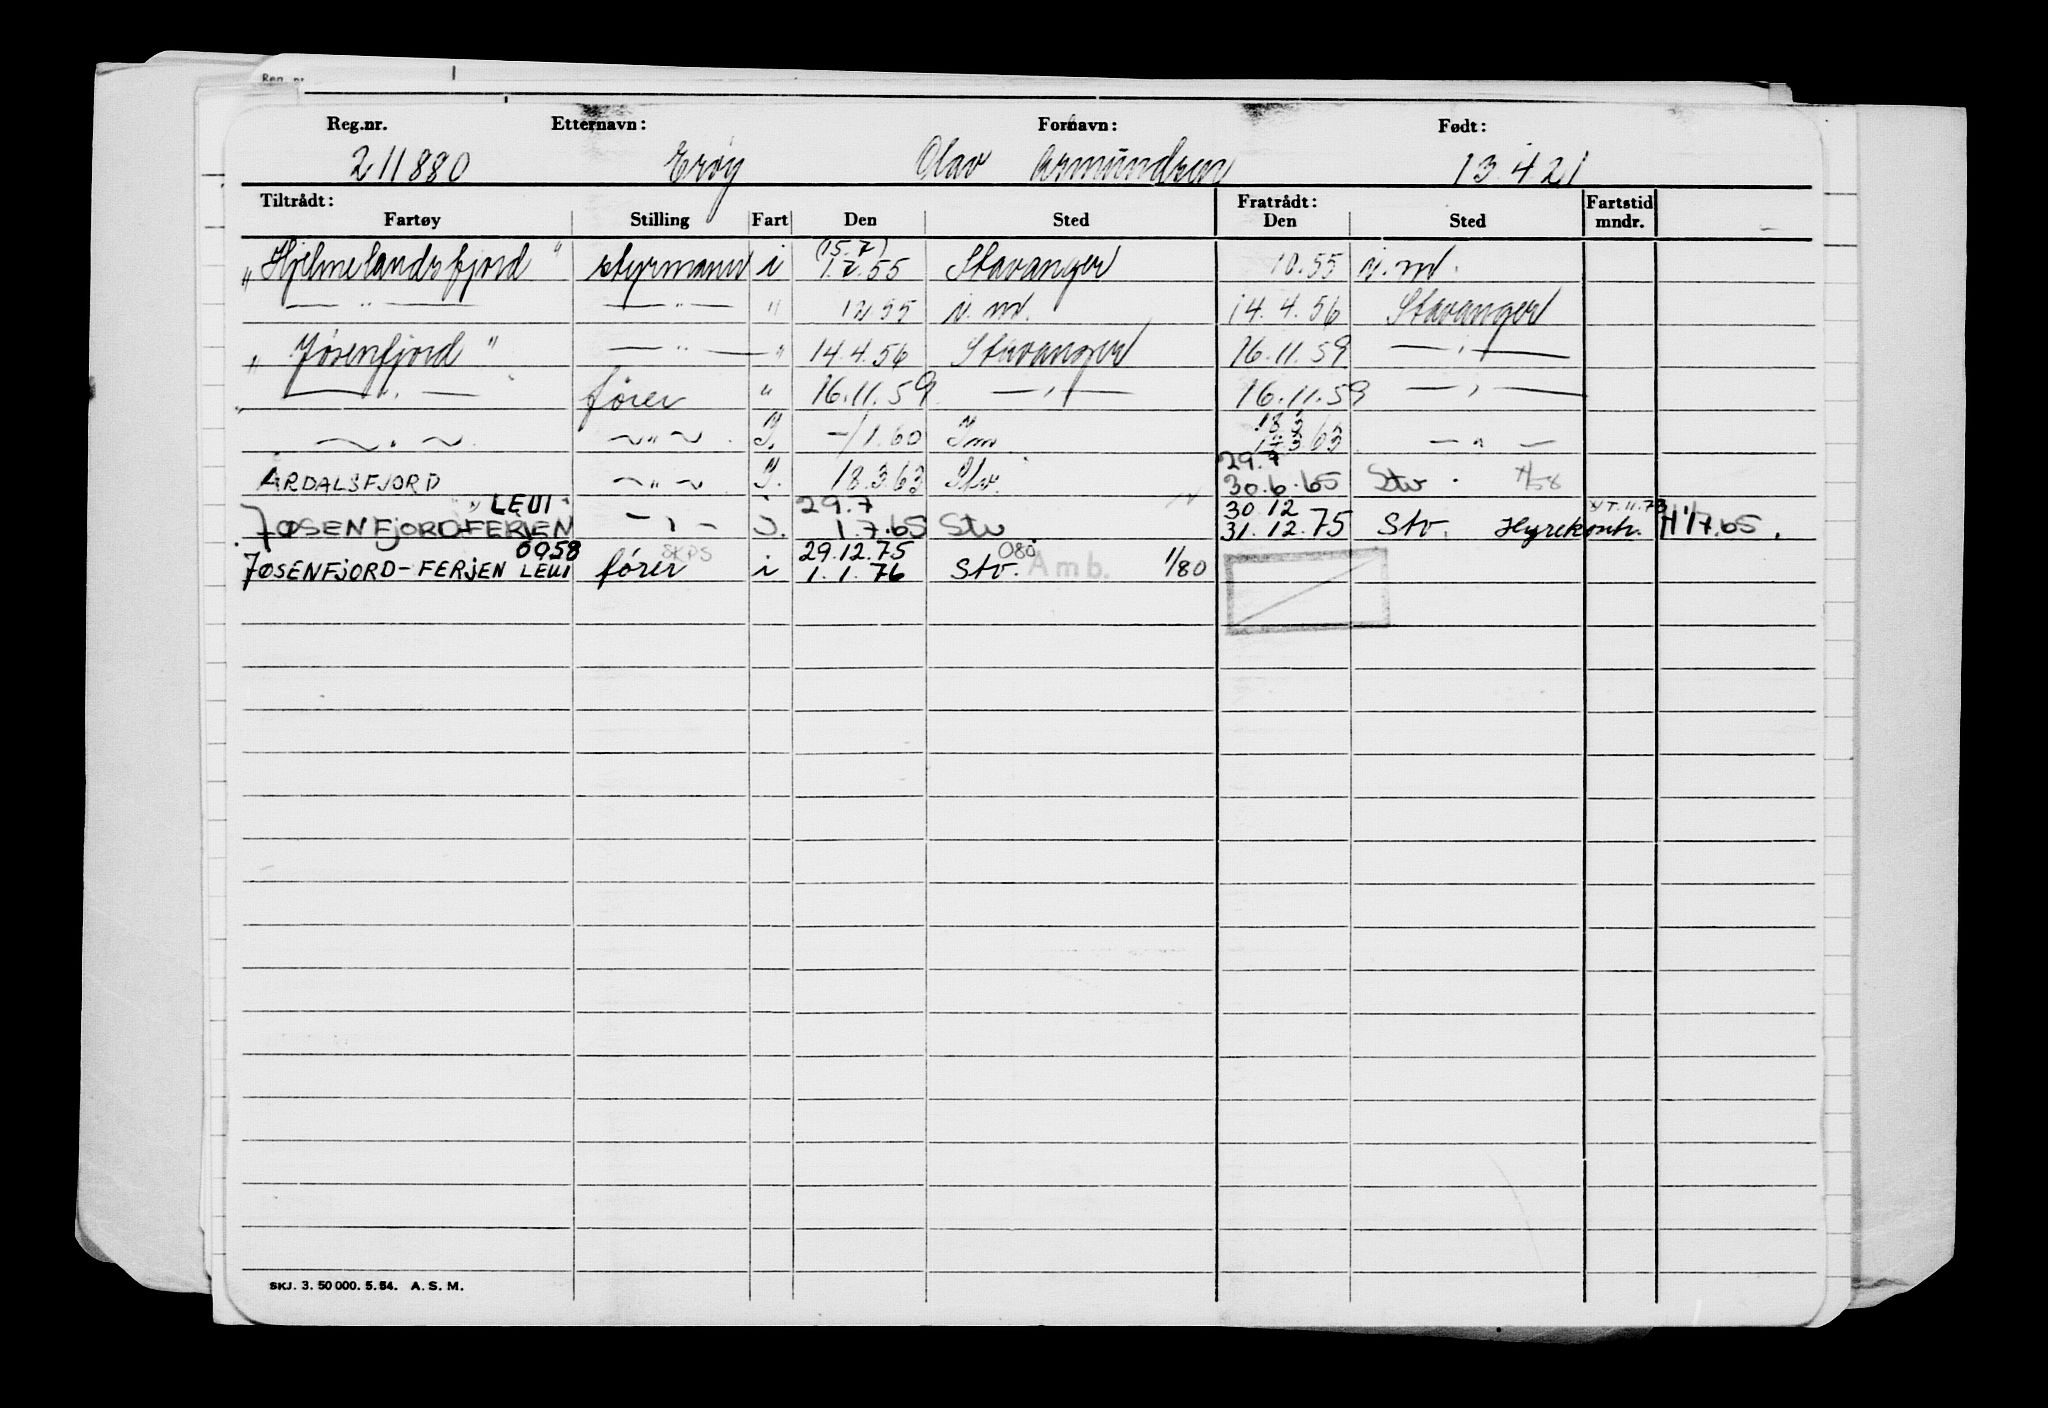 Reg.nr. Etternavn: Fornavn: Født:
211880 Erøy Olav Asmundsen 13.4.21
Tiltrådt: Fratrådt: Fartstid
Fartøy Stilling Fart Den Sted Den Sted mndr.
(15.7)
„Hjelmelandsfjord" styrmann i 1.7.55 Stavanger 10.55 i.m.
— " — — " — " 12.55 i.m. 14.4.56 Stavanger
„Jøsenfjord" — " — " 14.4.56 Stavanger 16.11.59 — " —
— " — fører " 16.11.59 — " — 16.11.59 — " —
18.3
— " — — " — I. -/1.60 Im 17.3.63 — " —
29.7
ÅRDALSFJORD — " — I. 18.3.63 Stv. 30.6.65 Stv. 4/58
" LEUI " 29.7 30.12 XT.11.73
JØSENFJORD-FERJEN — " — I. 1.7.65 Stv 31.12.75 Stv. Hyrekontr. H 1/7.65.
0958 SKPS 29.12.75 080
JØSENFJORD-FERJEN LEUI fører i 1.1.76 Stv. Amb. 1/80
SKJ. 3. 50 000. 5. 54. A. S. M.